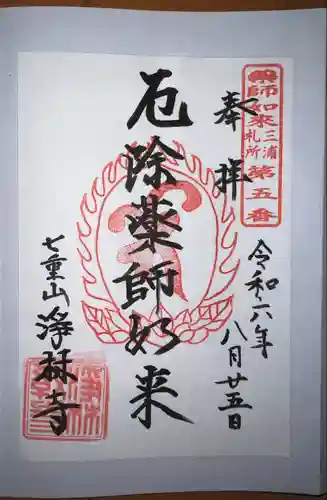 薬師如来三浦札所第五番
奉拝
令和六年八月廿五日
厄除薬師如来
七重山浄林寺